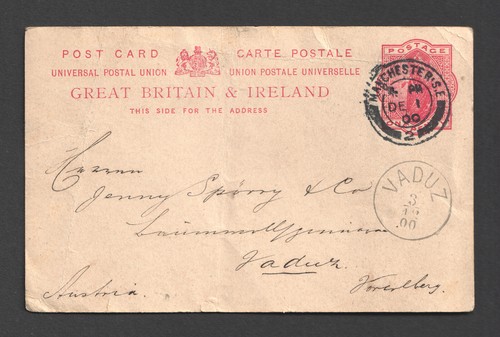 POST CARD CARTE POSTALE
UNIVERSAL POSTAL UNION UNION POSTALE UNIVERSELLE
GREAT BRITAIN & IRELAND
THIS SIDE FOR THE ADDRESS
POSTAGE
MANCHESTER.S.E
DE 1
00
2
Herren
Jenny Spörry & Co
Baumwollspinnerei
Vaduz.
Vorarlberg.
Austria.
VADUZ
3
00